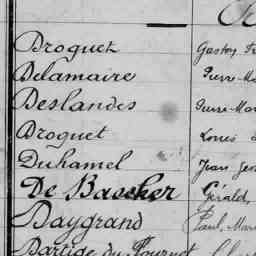 Droguet Gaston
Delamaire Pierre-Ma
Deslandes Pierre-Mar
Droguet Louis
Duhamel Jean Geo
De Bascher Gérald,
Daygrand Paul, Mar
Partige du